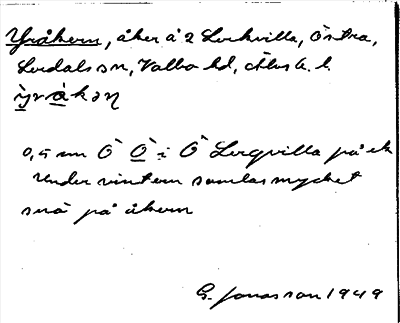 Yråkern, åker å 2 Lerkvilla, Östra,
Lerdals sn, Valbo hd, Älvs b. l.
ỳråkəɳ
0,5 m Ö Ö i Ö Lergvilla på ek
Under vintern samlas mycket
snö på åkern
G. Jonasson 1949